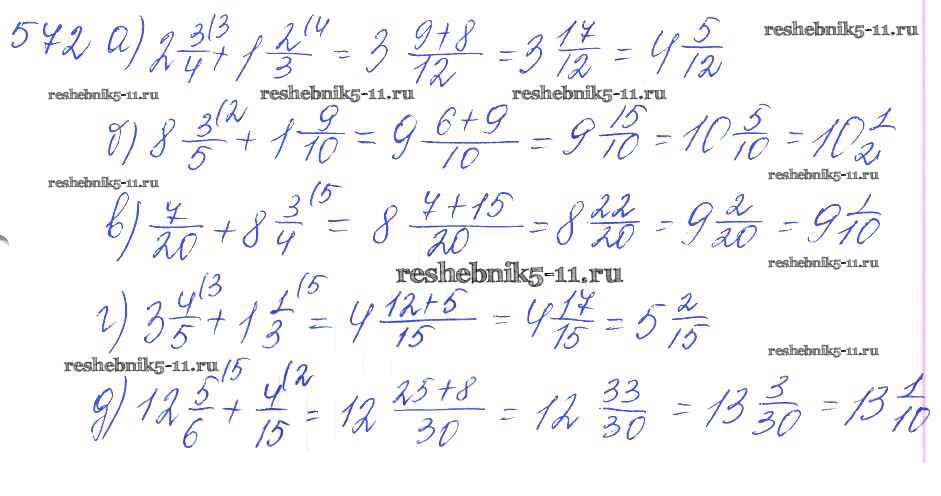 572 а) 2 3/4(3 + 1 2/3(4 = 3 (9+8)/12 = 3 17/12 = 4 5/12 reshebnik5-11.ru
reshebnik5-11.ru reshebnik5-11.ru reshebnik5-11.ru
б) 8 3/5(2 + 1 9/10 = 9 (6+9)/10 = 9 15/10 = 10 5/10 = 10 1/2
reshebnik5-11.ru reshebnik5-11.ru
в) 7/20 + 8 3/4(5 = 8 (7+15)/20 = 8 22/20 = 9 2/20 = 9 1/10
reshebnik5-11.ru reshebnik5-11.ru
г) 3 4/5(3 + 1 1/3(5 = 4 (12+5)/15 = 4 17/15 = 5 2/15
reshebnik5-11.ru reshebnik5-11.ru
д) 12 5/6(5 + 4/15(2 = 12 (25+8)/30 = 12 33/30 = 13 3/30 = 13 1/10